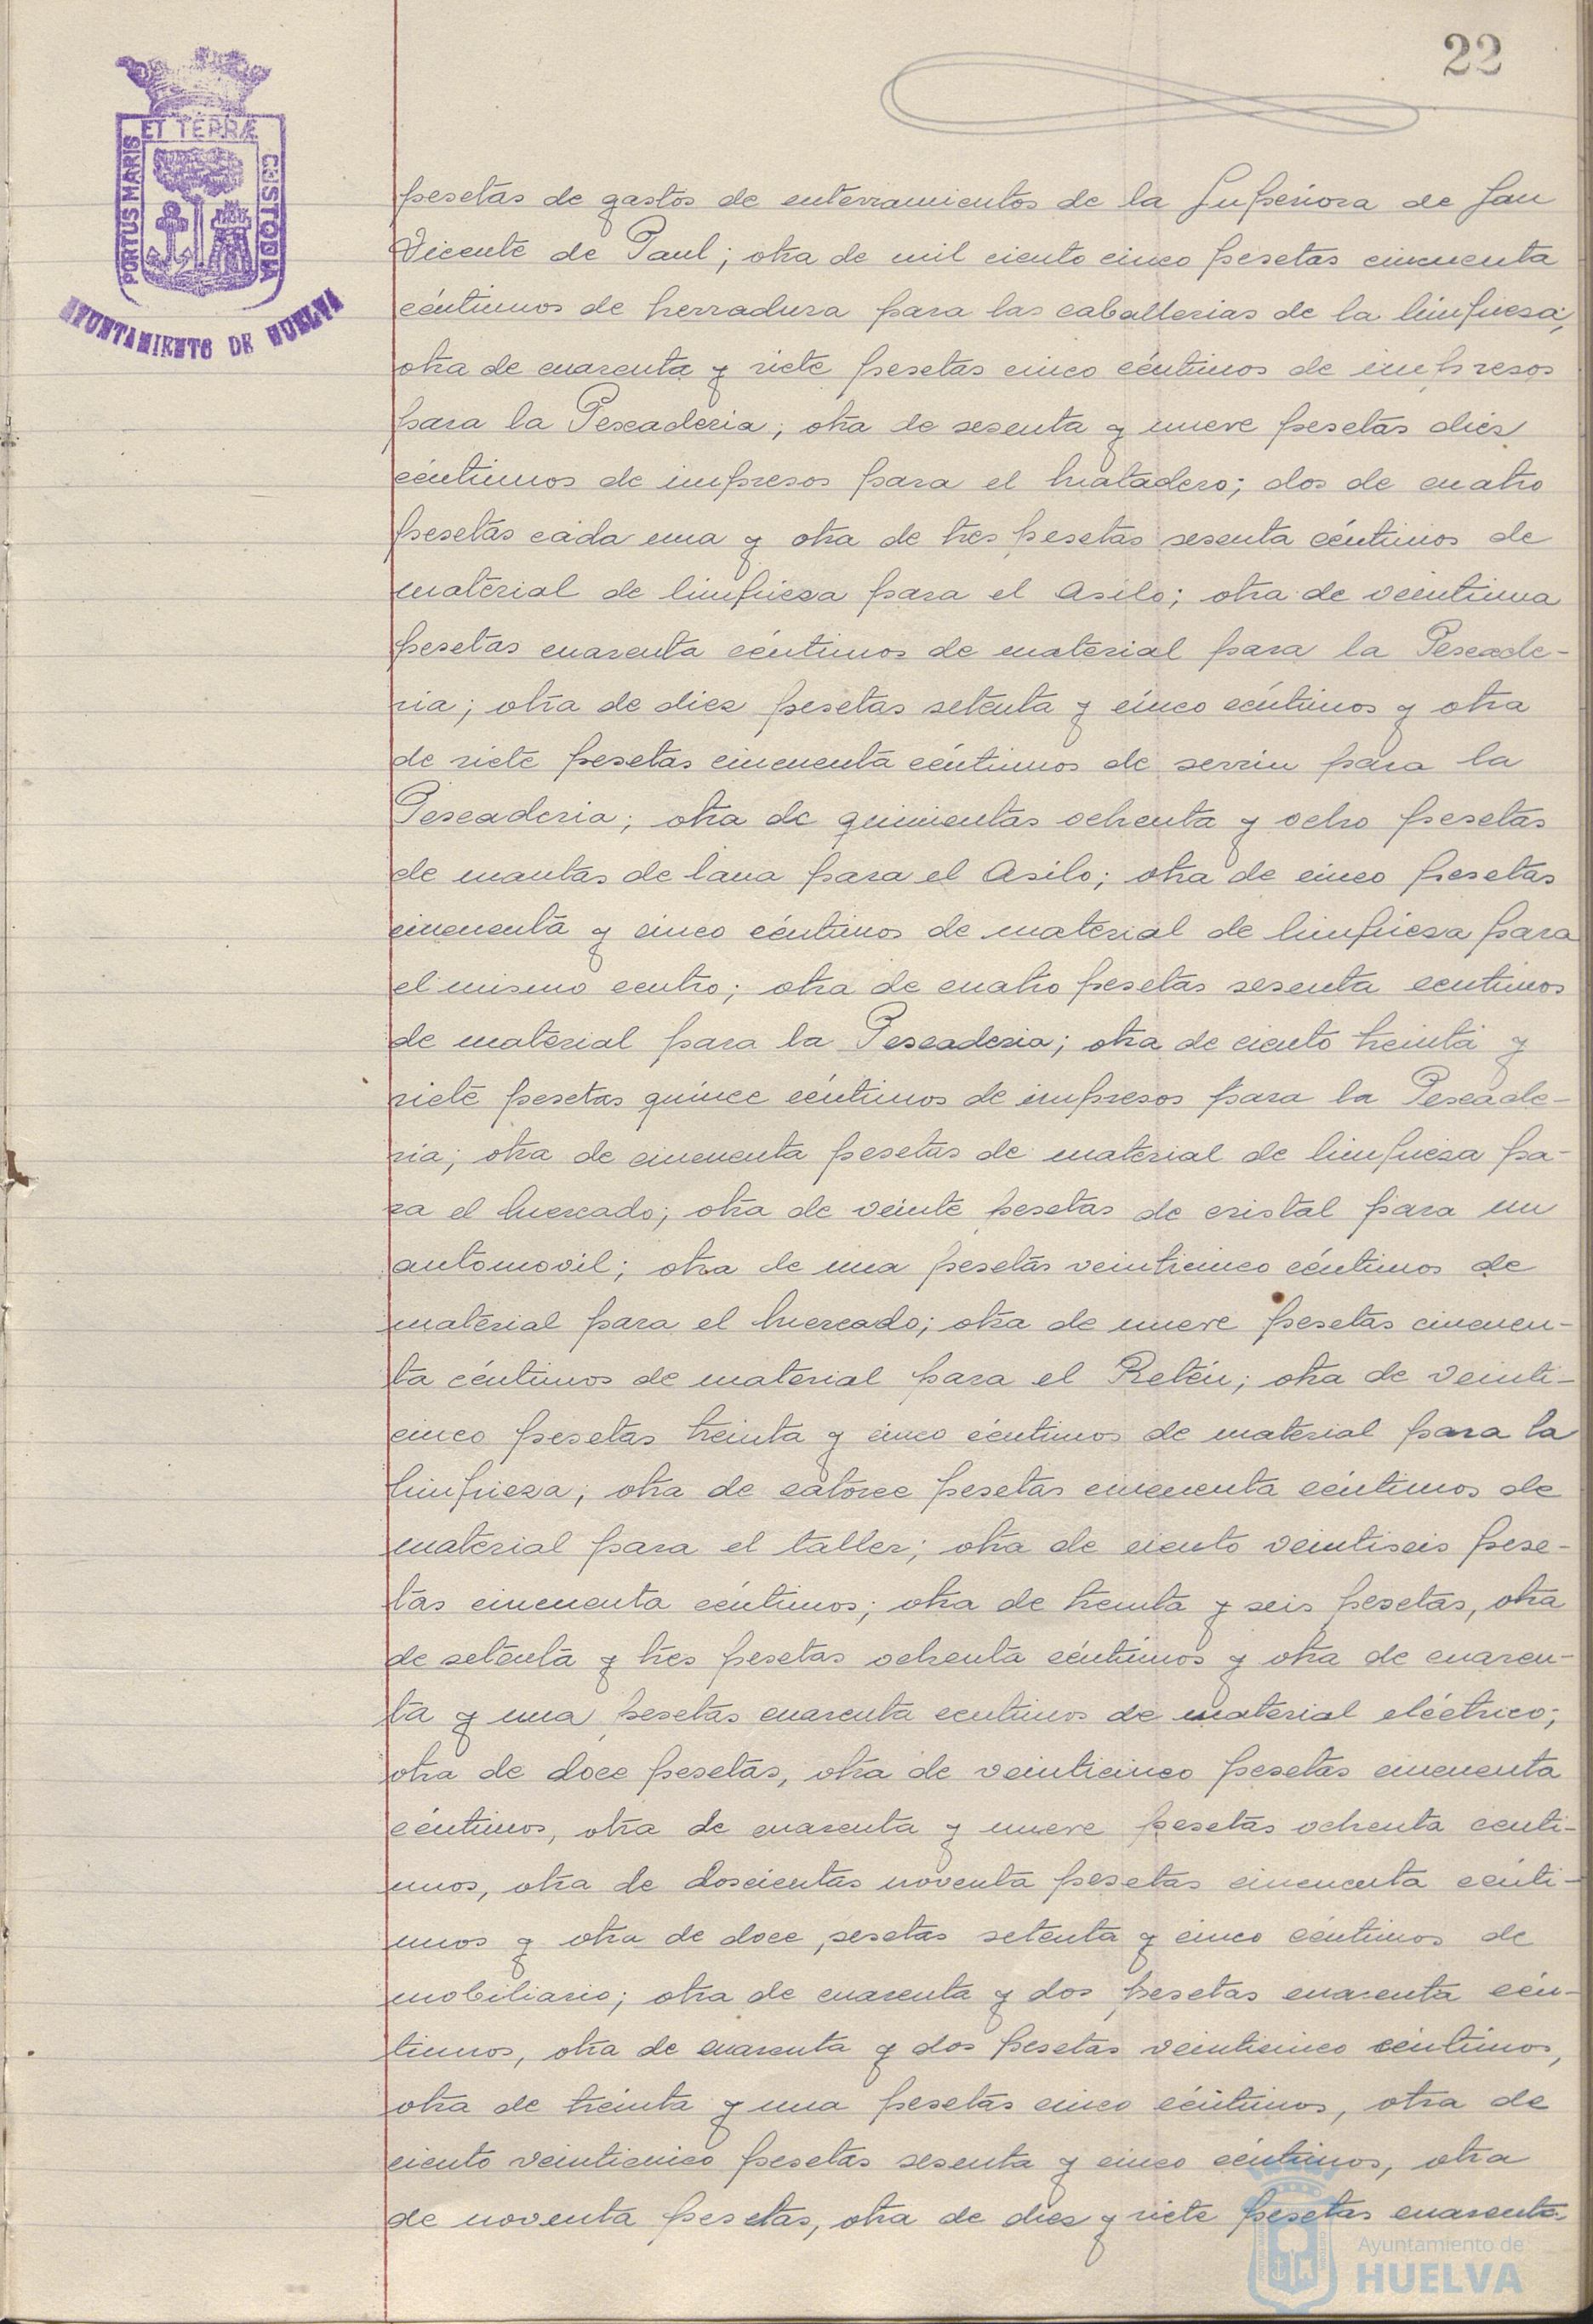 22
PORTUS MARIS ET TERRÆ CUSTODIA
AYUNTAMIENTO DE HUELVA
pesetas de gastos de enterramientos de la Superiora de San
Vicente de Paul; otra de mil ciento cinco pesetas cincuenta
céntimos de herradura para las caballerias de la limpieza;
otra de cuarenta y siete pesetas cinco céntimos de impresos
para la Pescaderia; otra de sesenta y nueve pesetas diez
céntimos de impresos para el Matadero; dos de cuatro
pesetas cada una y otra de tres pesetas sesenta céntimos de
material de limpieza para el Asilo; otra de veintiuna
pesetas cuarenta céntimos de material para la Pescade-
ria; otra de diez pesetas setenta y cinco céntimos y otra
de siete pesetas cincuenta céntimos de serrin para la
Pescaderia; otra de quinientas ochenta y ocho pesetas
de mantas de lana para el Asilo; otra de cinco pesetas
cincuenta y cinco céntimos de material de limpieza para
el mismo centro; otra de cuatro pesetas sesenta centimos
de material para la Pescaderia; otra de ciento treinta y
siete pesetas quince céntimos de impresos para la Pescade-
ria; otra de cincuenta pesetas de material de limpieza pa-
ra el Mercado; otra de veinte pesetas de cristal para un
automovil; otra de una pesetas veinticinco céntimos de
material para el Mercado; otra de nueve pesetas cincuen-
ta céntimos de material para el Retén; otra de veinti-
cinco pesetas treinta y cinco céntimos de material para la
limpieza; otra de catorce pesetas cincuenta céntimos de
material para el taller; otra de ciento veintiseis pese-
tas cincuenta céntimos; otra de treinta y seis pesetas, otra
de setenta y tres pesetas ochenta céntimos y otra de cuaren-
ta y una pesetas cuarenta centimos de material eléctrico;
otra de doce pesetas, otra de veinticinco pesetas cincuenta
céntimos, otra de cuarenta y nueve pesetas ochenta centi-
mos, otra de doscientas noventa pesetas cincuenta cénti-
mos y otra de doce pesetas setenta y cinco céntimos de
mobiliario; otra de cuarenta y dos pesetas cuarenta cén-
timos, otra de cuarenta y dos pesetas veinticinco céntimos,
otra de treinta y una pesetas cinco céntimos, otra de
ciento veinticinco pesetas sesenta y cinco céntimos, otra
de noventa pesetas, otra de diez y siete pesetas cuarenta
Ayuntamiento de
HUELVA